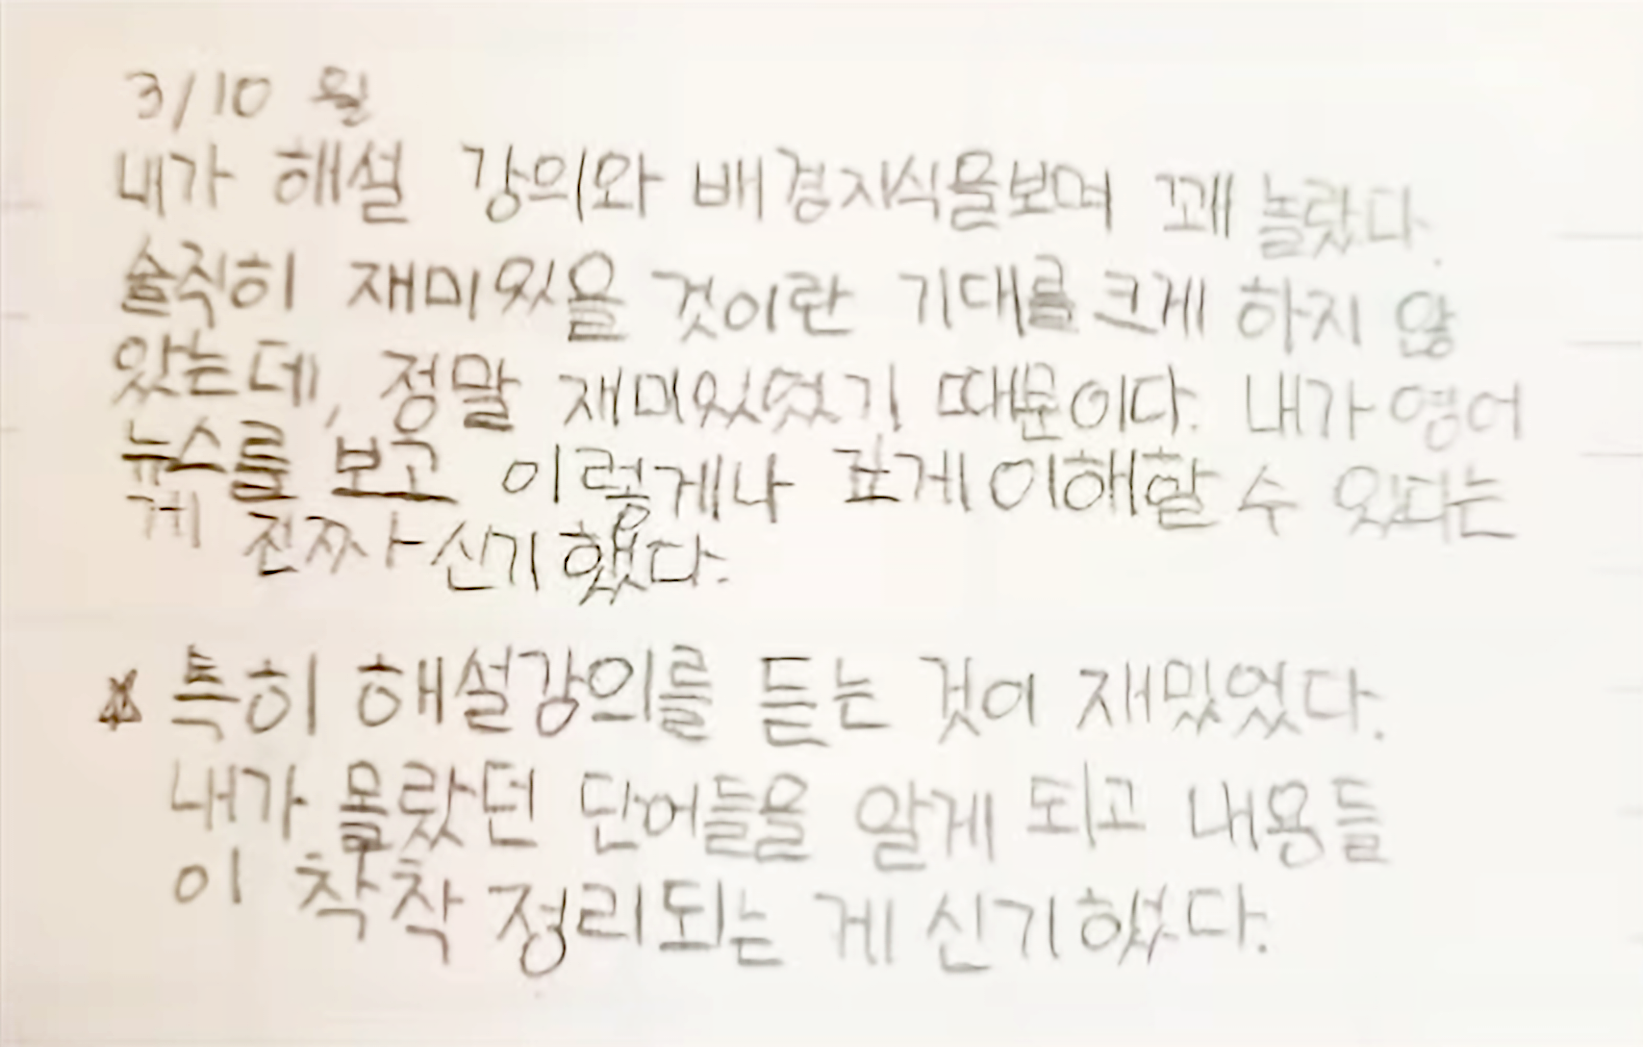 3/10 월
내가 해설 강의와 배경지식을보며 꽤 놀랐다.
솔직히 재미있을 것이란 기대를 크게 하지 않
았는데, 정말 재미있었기 때문이다. 내가 영어
뉴스를 보고 이렇게나 쉽게 이해할 수 있다는
게 진짜 신기했다.
☆ 특히 해설강의를 듣는 것이 재밌었다.
내가 몰랐던 단어들을 알게 되고 내용들
이 착착 정리되는 게 신기했다.